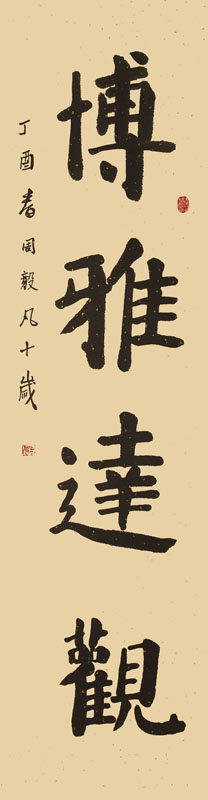 博雅達觀
丁酉春周毅凡十歲